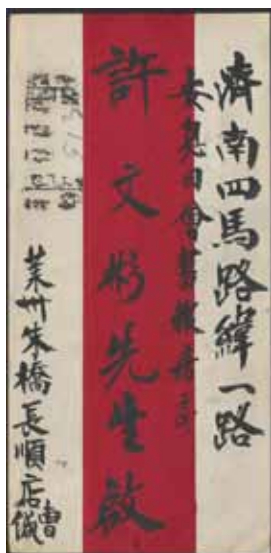 濟南四馬路緯一路
安息日會
許文彬先生啟
萊州朱橋長順店
曹緘